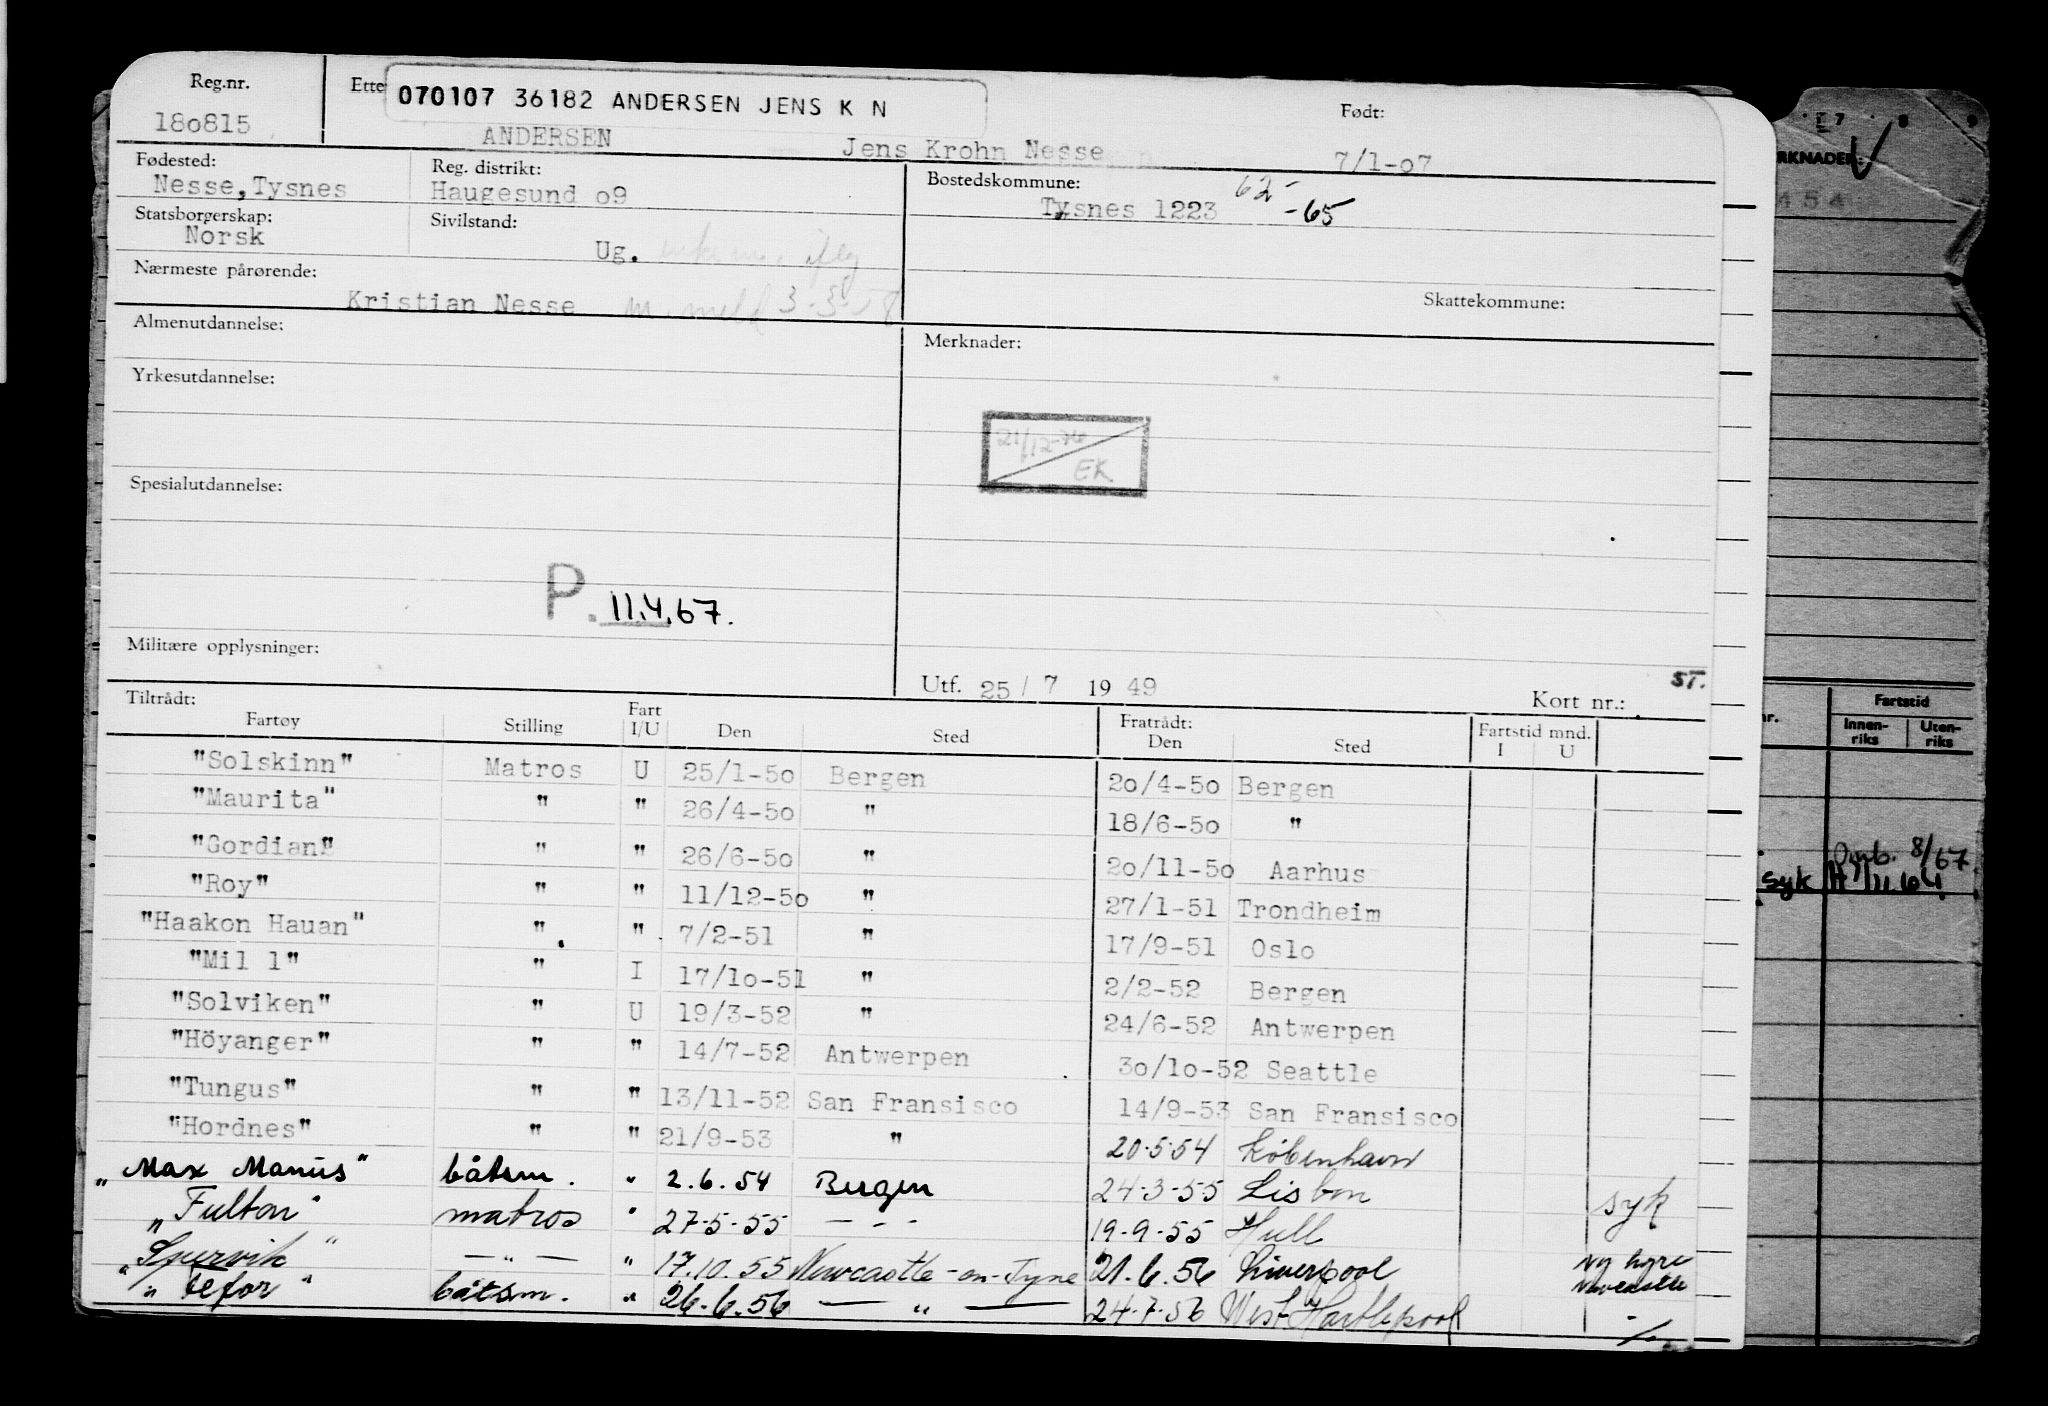 Reg.nr.
180815
Ette
070107 36182 ANDERSEN JENS K N
ANDERSEN Jens Krohn Nesse
Født:
7/1-07
Fødested:
Nesse, Tysnes
Reg. distrikt:
Haugesund 09
Bostedskommune:
Tysnes 1223 62- -65
Statsborgerskap:
Norsk
Sivilstand:
Ug.
Nærmeste pårørende:
Kristian Nesse m. meld 3-3-58
Skattekommune:
Almenutdannelse:
Merknader:
Yrkesutdannelse:
21/12-
EK
Spesialutdannelse:
P. 11.4.67.
Militære opplysninger:
Utf. 25/7 1949
Kort nr.:
ST.
Tiltrådt:
Fartøy Stilling Fart I/U Den Sted Fratrådt: Den Sted Fartstid mnd. I U
"Solskinn" Matros U 25/1-50 Bergen 20/4-50 Bergen
"Maurita" " " 26/4-50 " 18/6-50 "
"Gordian" " " 26/6-50 " 20/11-50 Aarhus
"Roy" " " 11/12-50 " 27/1-51 Trondheim
"Haakon Hauan" " " 7/2-51 " 17/9-51 Oslo
"Mil 1" " I 17/10-51 " 2/2-52 Bergen
"Solviken" " U 19/3-52 " 24/6-52 Antwerpen
"Höyanger" " " 14/7-52 Antwerpen 30/10-52 Seattle
"Tungus" " " 13/11-52 San Fransisco 14/9-53 San Fransisco
"Hordnes" " " 21/9-53 " 20.5.54 København
"Max Manus" båtsm. " 2.6.54 Bergen 24.3.55 Lisbon syk
"Fulton" matros " 27.5.55 - - - 19.9.55 Hull
"Spurvik" — " — " 17.10.55 Newcastle-on-Tyne 21.6.56 Liverpool ny hyre Newcastle
"Befor" båtsm. " 26.6.56 — " — 24.7.56 West Hartlepool ./.
RKNADER:
454
nr.
Fartstid
Innen-
riks
Uten-
riks
8/67
syk